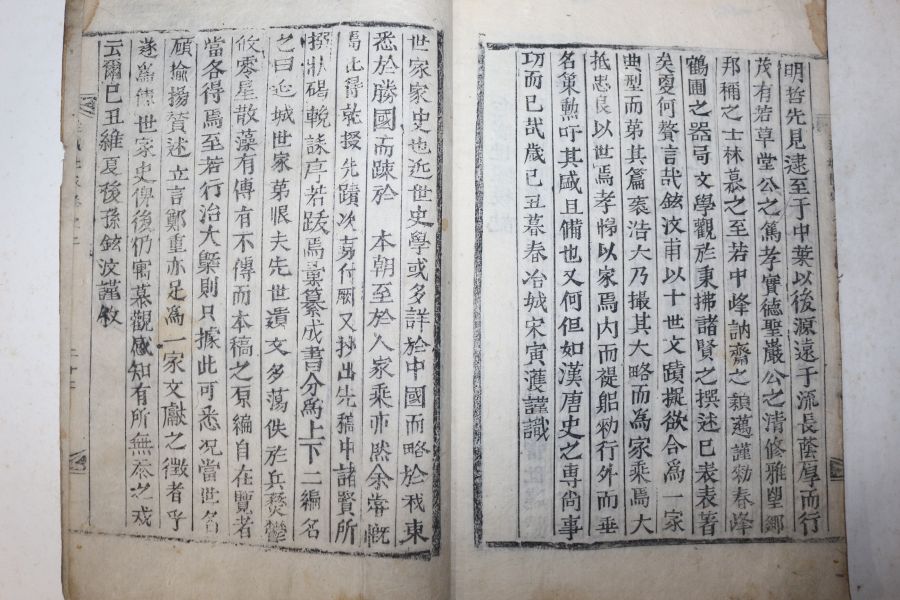 明哲先見逮至于中葉以後源遠于流長蔭厚而行
茂有若草堂公之篤孝實德聖巖公之清修雅望鄉
邦稱之士林慕之至若中峰訥齋之穎邁謹勑春峰
鶴圃之器局文學觀於東拂諸賢之撰述已表表著
矣夏何贅言哉鉉汶甫以十世文蹟擬欲合爲一家
典型而第其篇袠浩大乃撮其大略而爲家乘焉大
抵忠良以世焉孝悌以家焉内而禔躬勑行外而垂
名策勲吁其盛且備也又何但如漢唐史之専尚事
功而已哉歲己丑暮春冶城宋寅濩謹識
世家家史也近世史學或多詳於中國而略於我東
悉於勝國而踈於 本朝至於人家乘亦然余嘗慨
焉比歸就掇先蹟次第付厥又抄出先稿中諸賢所
撰狀碣輓誄序若跋焉彙纂成書分爲上下二編名
之曰 城世家第恨夫先世遺文多蕩佚於兵燹鬱
攸零星散藻有傳有不傳而本稿之原編自在覽者
當各得焉至若行治大槩則只據此可悉况當世名
碩揄揚贊述立言鄭重亦足爲一家文獻之徵者乎
遂爲 世家史俾後仍寓慕觀感知有所無忝之戒
云爾己丑維夏後孫鉉汶謹敘